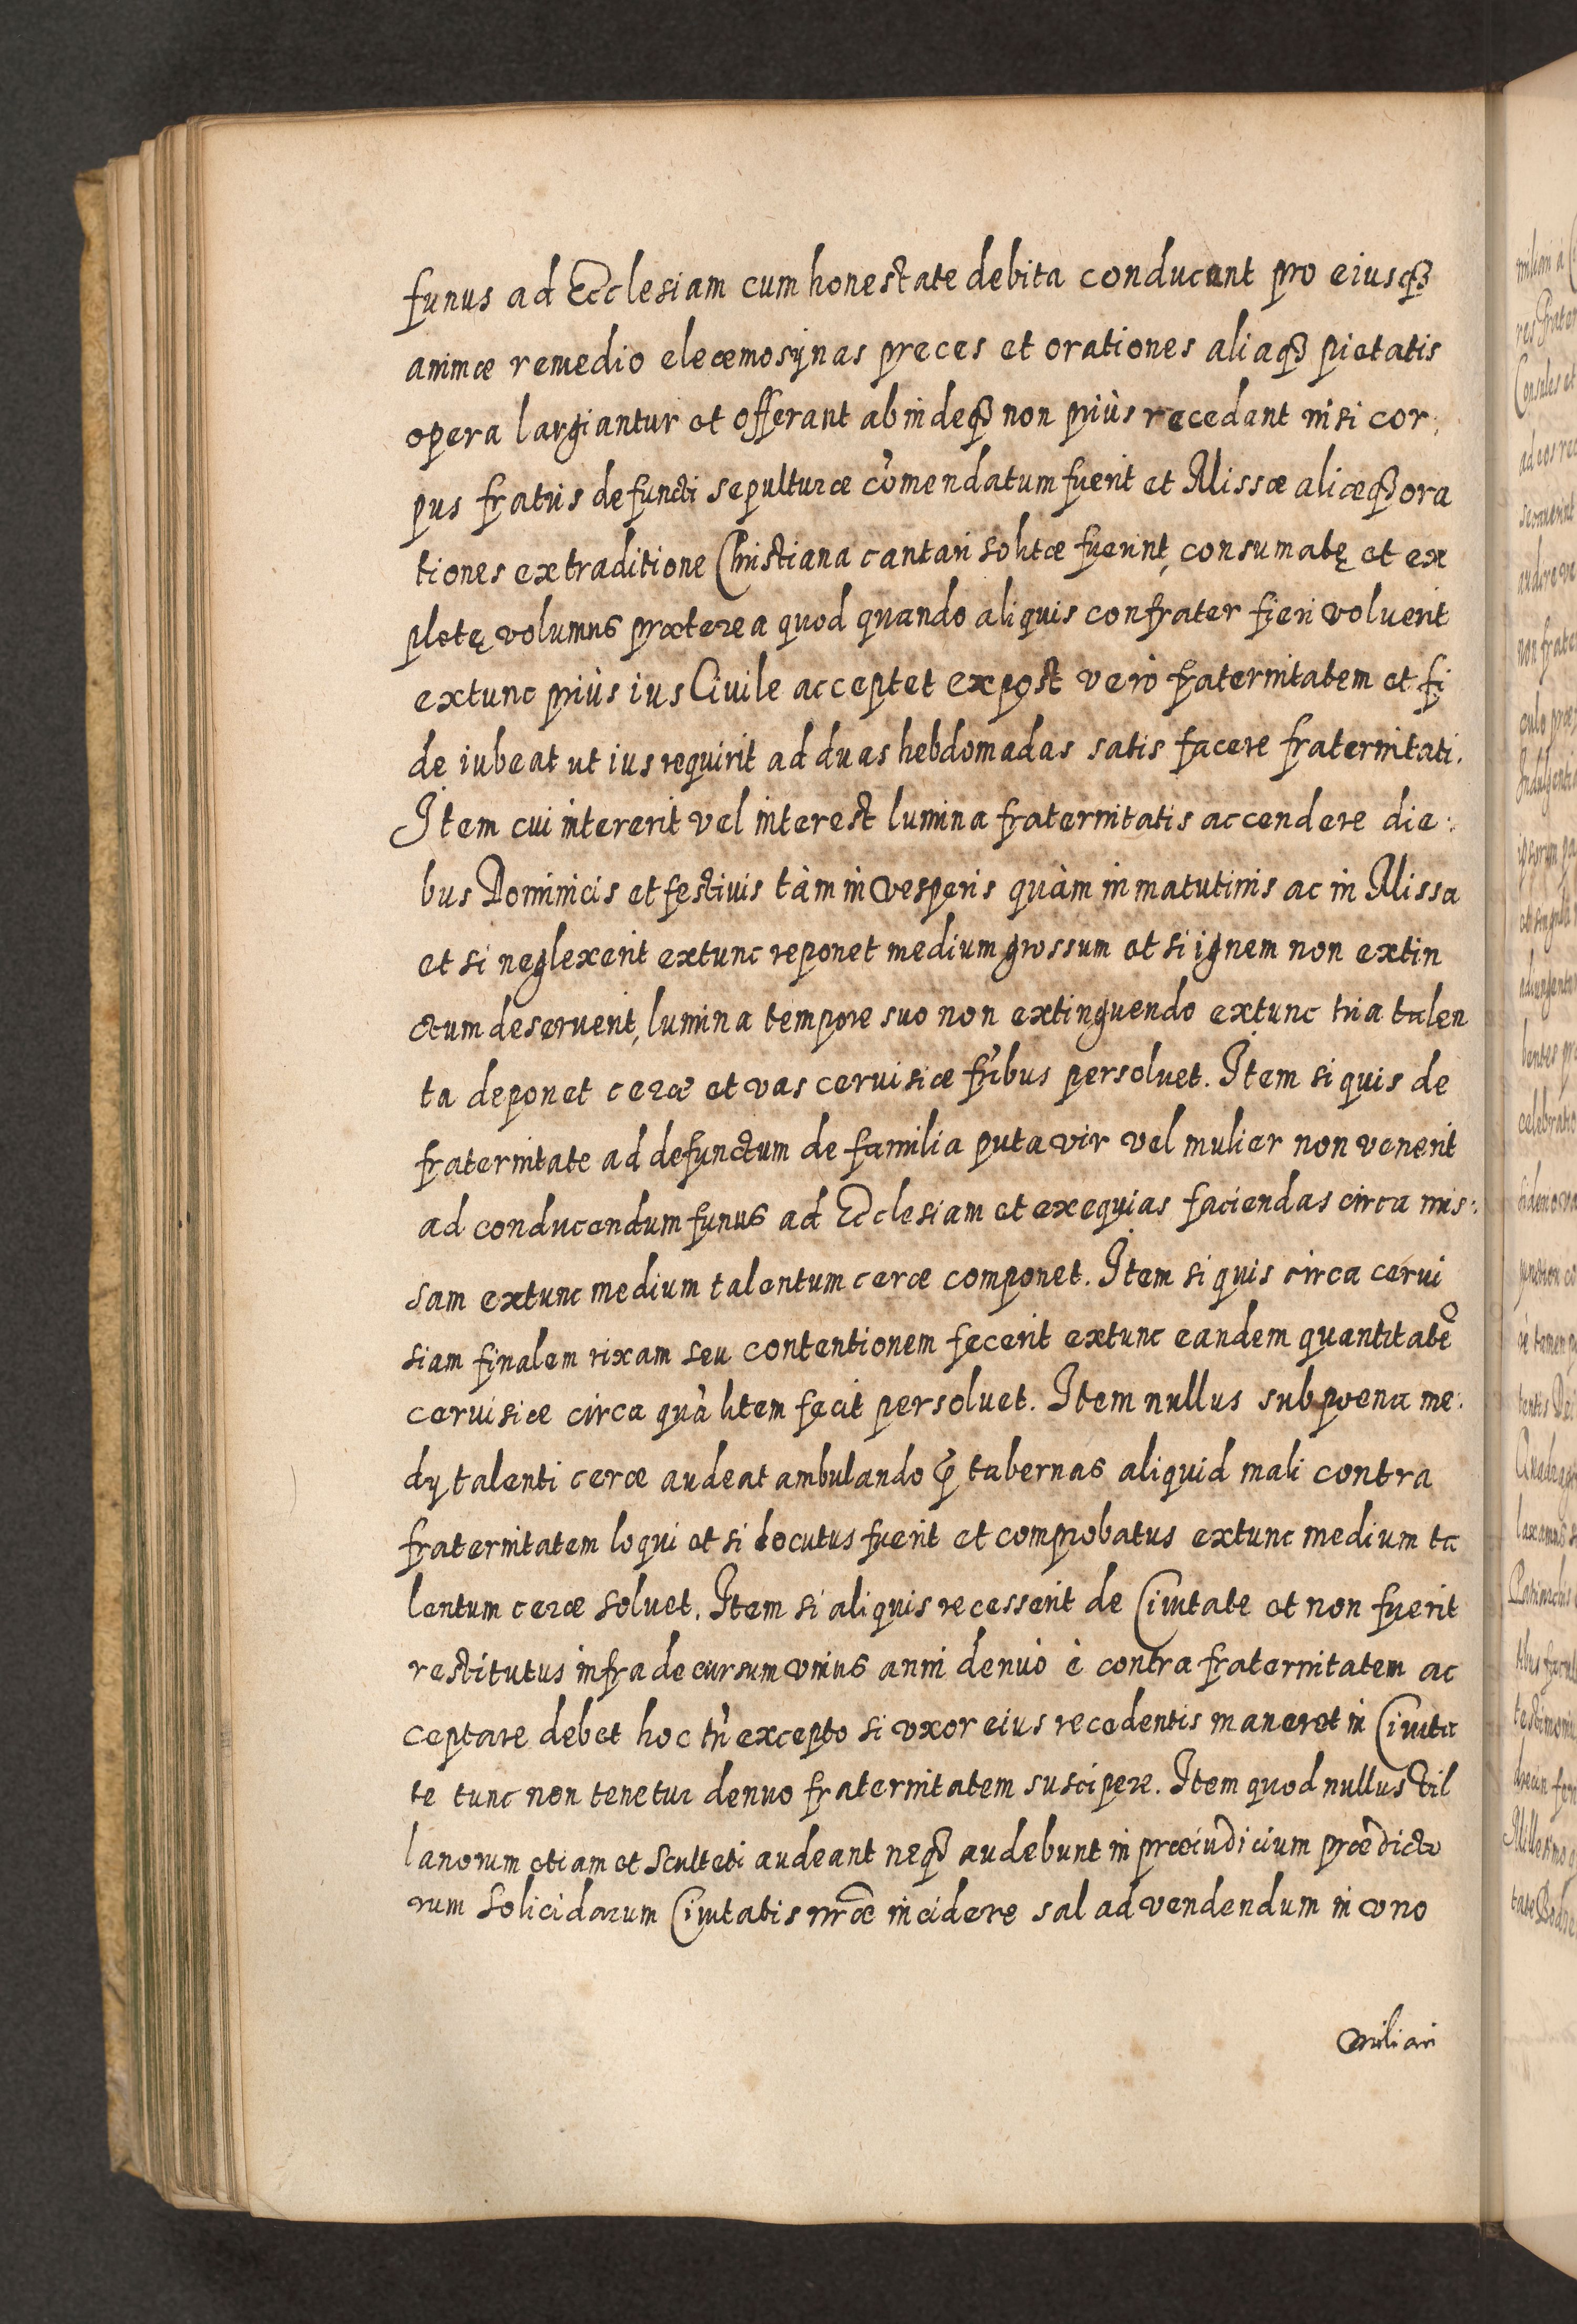 funus ad Ecclesiam cum honestate debita conducant pro eiusq3
animæ remedio eleæmosÿnas preces et orationes aliaq3 pietatis
opera largiantur et offerant abindeq3 non priùs recedant nisi cor:
pus fratris defuncti sepulturæ cōmendatum fuerit et Missæ aliæq3 ora
tiones ex traditione Christiana cantari solitæ fuerint, consumatę et ex
pletę volumus præterea quod quando aliquis confrater fieri voluerit
extunc priùs ius Ciuile acceptet ex post verò fraternitatem et fi
de iubeat ut ius requirit ad duas hebdomadas satis facere fraternitati.
Item cui intererit vel interest lumina fraternitatis accendere die:
bus Dominicis et festiuis tàm in vesperis quàm in matutinis ac in Missa
et si neglexerit extunc reponet medium grossum et si ignem non extin
ctum deseruerit, lumina tempore suo non extinguendo extunc tria talen
ta deponet ceræ et vas ceruisiæ fr̄ibus persoluet. Item si quis de
fraternitate ad defunctum de familia puta vir vel mulier non venerit
ad conducendum funus ad Ecclesiam et exequias faciendas circa mis:
sam extunc medium talentum ceræ componet. Item si quis circa cerui
siam finalem rixam seu contentionem fecerit extunc eandem quantitatē
ceruisiæ circa quā litem fecit persoluet. Item nullus sub poena me:
dÿ talenti ceræ audeat ambulando ꝑ tabernas aliquid mali contra
fraternitatem loqui et si locutus fuerit et comprobatus extunc medium ta
lentum ceræ soluet. Item si aliquis recesserit de Ciuitate et non fuerit
restitutus infra decursum vnius anni denuò è contra fraternitatem ac
ceptare debet hoc tn̄ excepto si vxor eius recedentis maneret in Ciuita
te tunc non tenetur denuo fraternitatem suscipere. Item quod nullus Vil
lanorum etiam et Sculteti audeant neq3 audebunt in præiudicium prædicto
rum Solicidarum Ciuitatis nr̄æ incidere sal ad vendendum in vno
miliari